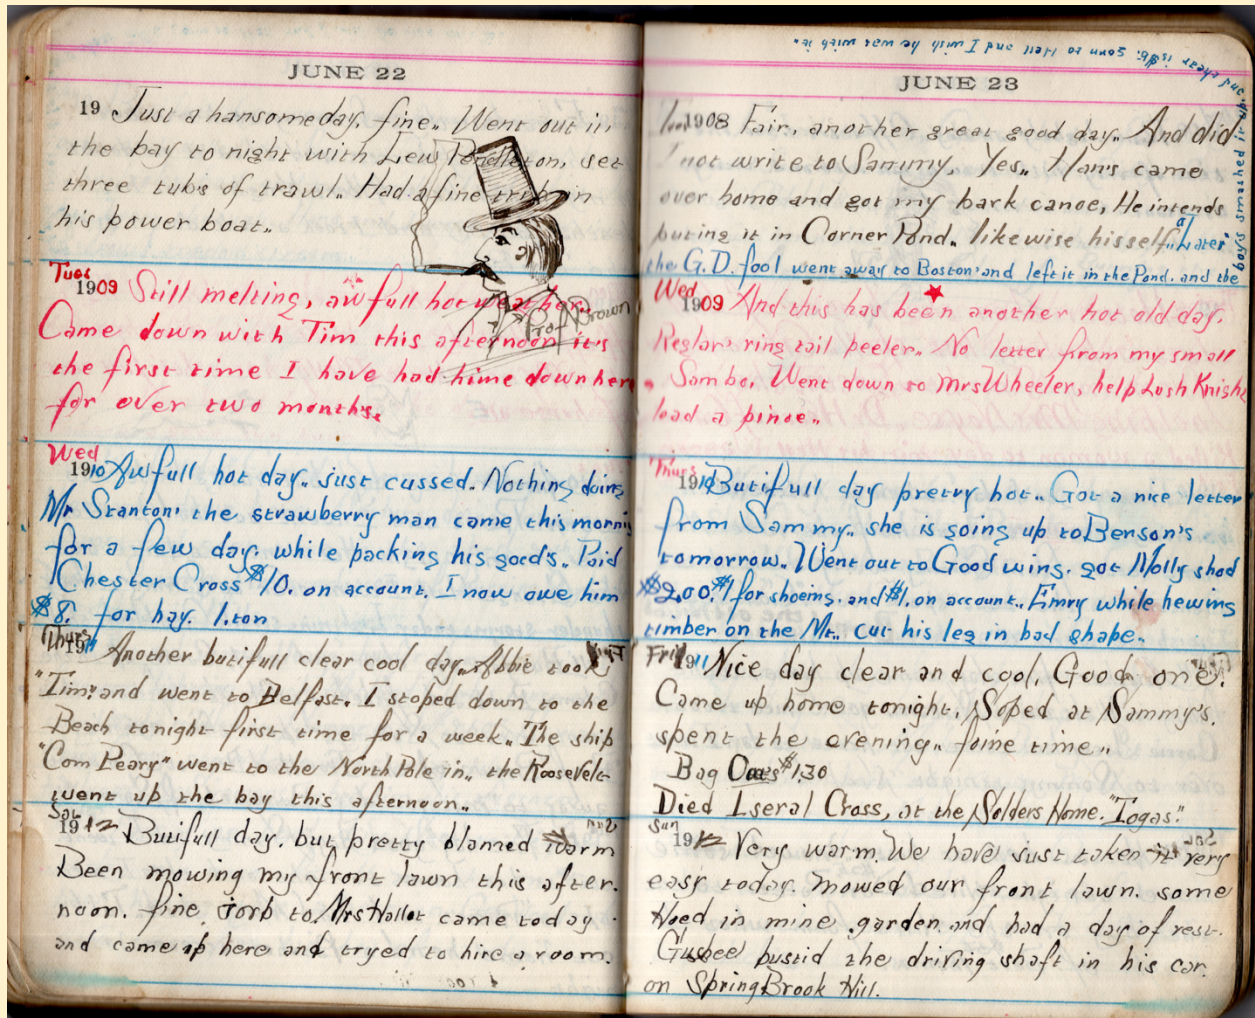 JUNE 22
19 Just a hansome day, fine.. Went out in
the bay to night with Lew Pendleton, set
three tubs of trawl.. Had a fine trip in
his power boat..
Prof Brown
Tues
1909 Still melting, awfull hot weather.
Came down with Tim this afternoon it's
the first time I have had hime down here
for over two months.
Wed
1910 Awfull hot day.. just cussed. Nothing doing
Mr Stanton, the strawberry man came this morning
for a few day, while packing his goods.. Paid
Chester Cross $10. on account. I now owe him
$8. for hay. 1.ton
Thurs
1911 Another butifull clear cool day.. Abbie took
"Tim" and went to Belfast. I stoped down to the
Beach tonight first time for a week.. The ship
"Com Peary" went to the North Pole in.. the Roosevelt
went up the bay this afternoon..
Sat
1912 Butifull day, but pretty blamed warm
Been mowing my front lawn this after.
noon. fine jorb to. Mrs Hallot came today
and came up here and tryed to hire a room.
JUNE 23
1908 Fair, another great good day.. And did
I not write to Sammy, Yes.. Hans came
over home and got my bark canoe, He intends
puting it in Corner Pond.. likewise hisself.. "Later"
the G.D. fool went away to Boston and left it in the Pond. and the
boys smashed it up.
and thear is $6. gorn to Hell and I wish he was with it"
Wed
1909 And this has been another hot old day.
Reglar ring tail peeler.. No letter from my small
Sambo. Went down to Mrs Wheeler, help Lush Knight
load a pinoe..
Thurs
1910 Butifull day pretty hot.. Got a nice letter
from Sammy.. she is going up to Benson's
tomorrow.. Went out to Goodwins. got Molly shod
$2.00. $1 for shoeing. and $1. on account.. Emry while hewing
timber on the Mt. cut his leg in bad shape..
Frid
1911 Nice day clear and cool. Good one.
Came up home tonight, Soped at Sammy's.
spent the evening.. foine time..
Bag Oats $1.30
Died Iseral Cross, at the Solders Home. "Togas."
Sun
1912 Very warm. We have just taken it very
easy today. mowed our front lawn. some
Hoed in mine garden and had a day of rest.
Gushee bustid the driving shaft in his car
on Spring Brook Hill.